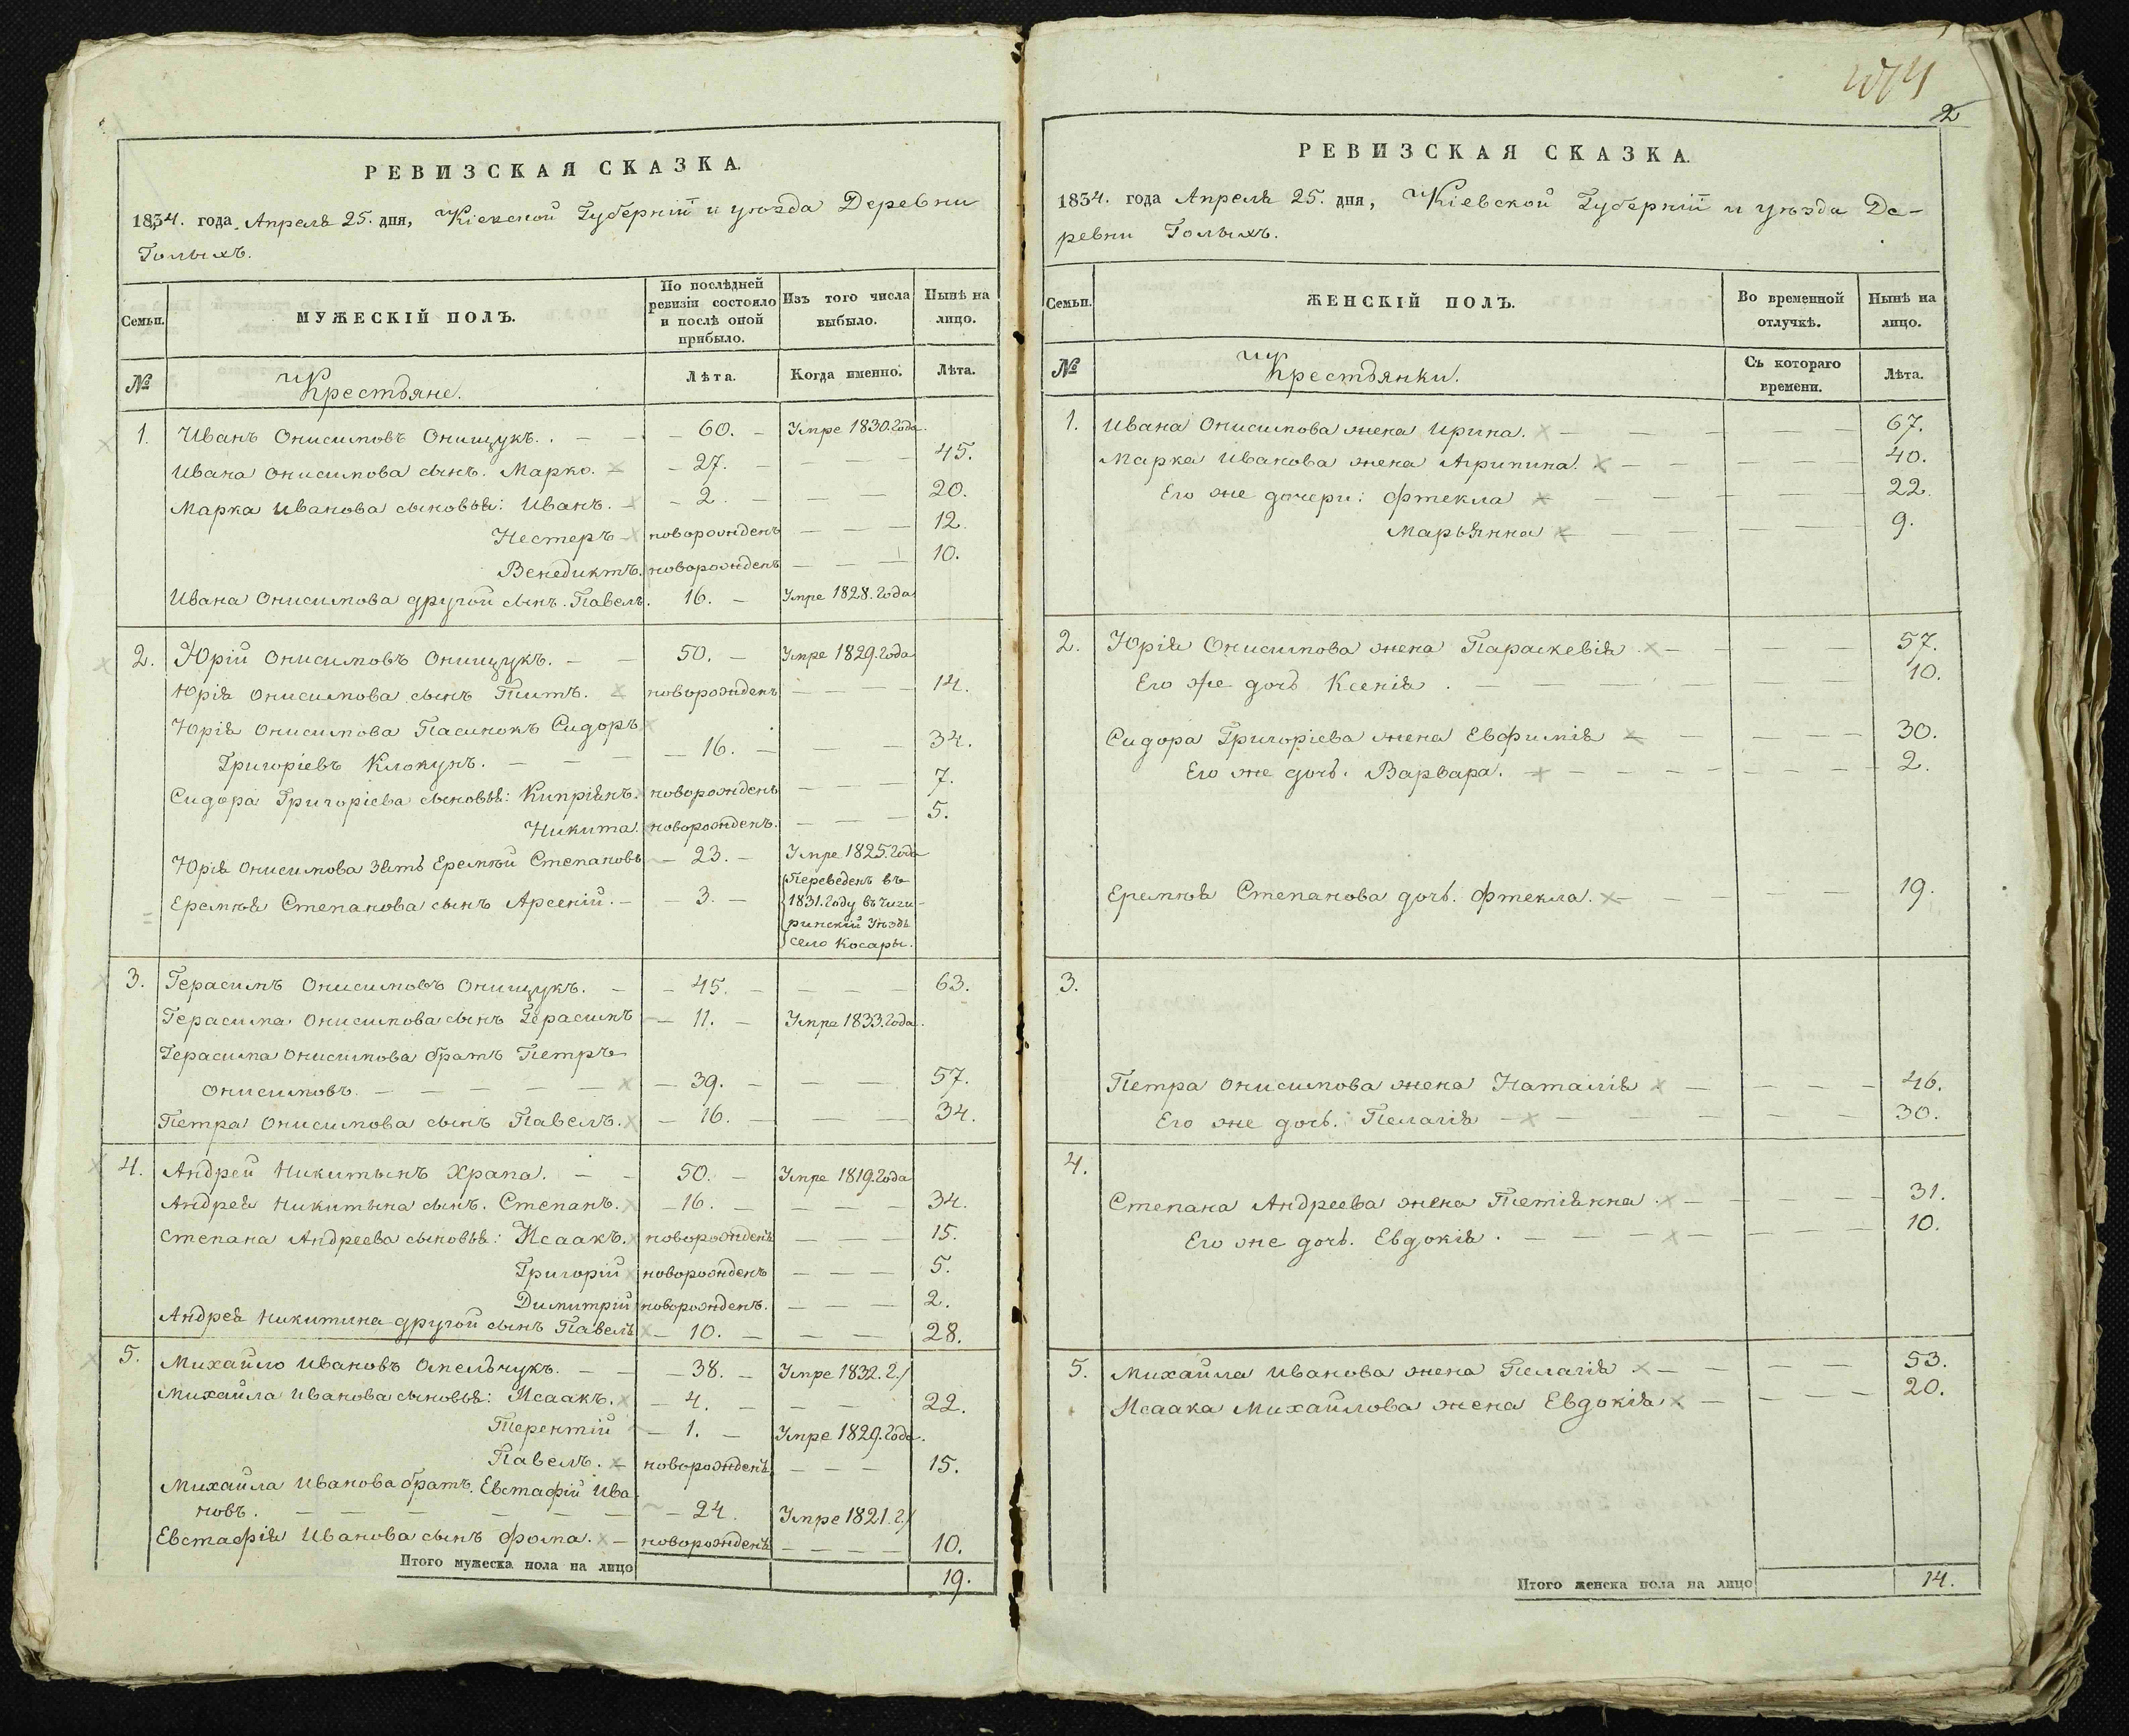 РЕВИЗСКАЯ СКАЗКА.
1834. года Апреля 25. дня, Кіевской Губерніи и уѣзда Деревни
Голыхъ.
Семьи.
МУЖЕСКІЙ ПОЛЪ.
По послѣдней
ревизіи состояло
и послѣ оной
прибыло.
Изъ того числа
выбыло.
Нынѣ на
лицо.
№
Крестьяне.
Лѣта.
Когда именно.
Лѣта.
1. Иванъ Онисимовъ Онищукъ. 60. Умре 1830. Года.
Ивана Онисимова сынъ. Марко. 27. 45.
Марка Иванова сыновья: Иванъ. 2. 20.
Нестеръ новорожденъ 12.
Венедиктъ. новорожденъ 10.
Ивана Онисимова другой сынъ. Павелъ. 16. Умре 1828. Года
2. Юрій Онисимовъ Онищукъ. 50. Умре 1829. Года
Юрія Онисимова сынъ Титъ. новорожденъ 14.
Юрія Онисимова Пасинокъ Сидоръ
Григоріевъ Клокунъ. 16. 34.
Сидора Григоріева сыновья: Кипріянъ. новорожденъ 7.
Никита. новорожденъ. 5.
Юрія Онисимова зять Еремѣй Степановъ 23. Умре 1825. Года
Еремѣя Степанова сынъ Арсеній. 3. Переведенъ въ
1831. Году въ Чиги-
ринскій Уѣздъ
село Косары.
3. Герасимъ Онисимовъ Онищукъ. 45. 63.
Герасима Онисимова сынъ Герасимъ 11. Умре 1833. Года.
Герасима Онисимова братъ Петръ
Онисимовъ. 39. 57.
Петра Онисимова сынъ Павелъ. 16. 34.
4. Андрей Никитынъ Храпа. 50. Умре 1819. Года
Андрея Никитына сынъ. Степанъ. 16. 34.
Степана Андреева сыновья: Исаакъ. новорожденъ 15.
Григорій новорожденъ 5.
Димитрій новорожденъ. 2.
Андрея Никитина другой сынъ Павелъ 10. 28.
5. Михайло Ивановъ Омельчукъ. 38. Умре 1832. г./
Михайла Иванова сыновья: Исаакъ. 4. 22.
Терентій 1. Умре 1829. Года.
Павелъ. новорожденъ 15.
Михайла Иванова братъ. Евстафій Ива
новъ. 24. Умре 1821. г./
Евстафія Иванова сынъ Фома. новорожденъ 10.
Итого мужеска пола на лицо 19.
2
РЕВИЗСКАЯ СКАЗКА.
1834. года Апреля 25. дня, Кіевской Губерніи и уѣзда Де-
ревни Голыхъ.
Семьи.
ЖЕНСКІЙ ПОЛЪ.
Во временной
отлучкѣ.
Нынѣ на
лицо.
№
Крестьянки.
Съ котораго
времени.
Лѣта.
1. Ивана Онисимова жена Ирина. 67.
Марка Иванова жена Агрипина. 40.
Его же дочери: Фтекла 22.
Марьянна 9.
2. Юрія Онисимова жена Параскевія 57.
Его же дочь Ксенія. 10.
Сидора Григоріева жена Евфимія 30.
Его же дочь. Варвара. 2.
Еремѣя Степанова дочь. Фтекла. 19.
3.
Петра Онисимова жена Наталія 46.
Его же дочь. Пелагія 30.
4.
Степана Андреева жена Тетіянна 31.
Его же дочь. Евдокія. 10.
5. Михайла Иванова жена Пелагія 53.
Исаака Михайлова жена Евдокія 20.
Итого женска пола на лицо 14.